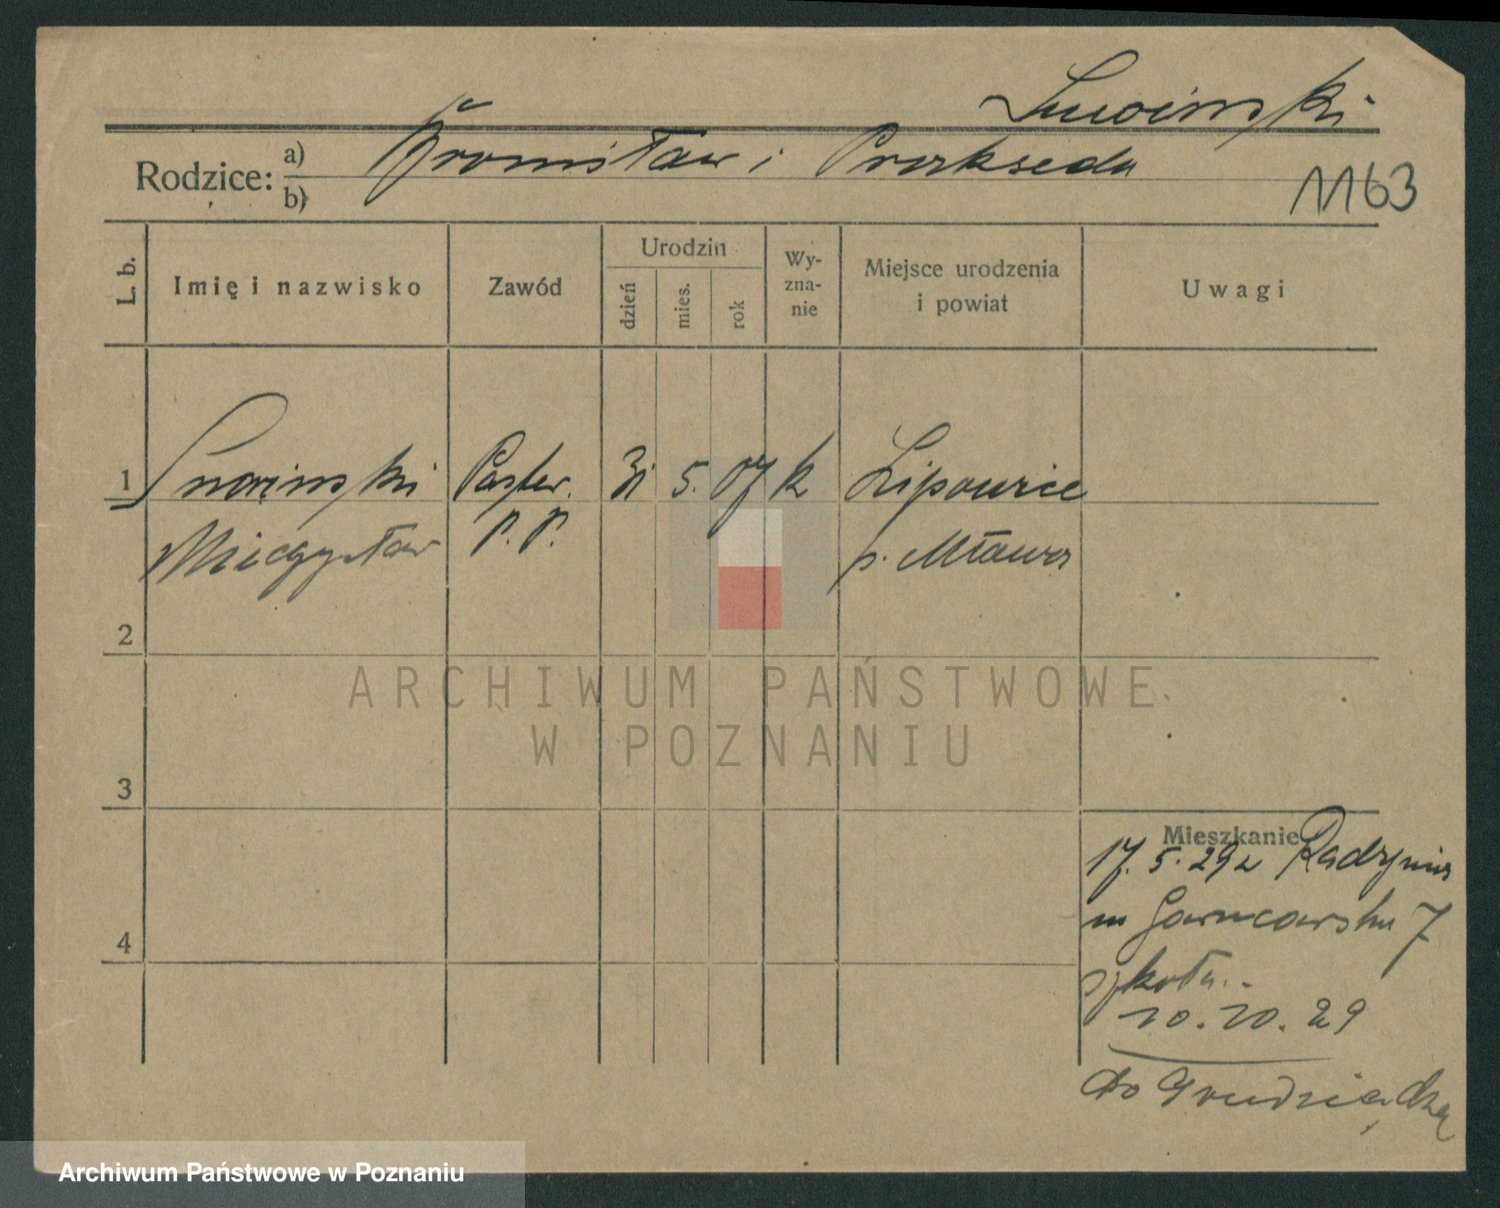 Rodzice: a)
b)
Bronisław i Prakseda
1163
L. b.
Imię i nazwisko
Zawód
Urodzin
dzień
mies.
rok
Wy-
zna-
nie
Miejsce urodzenia
i powiat
Uwagi
1
Poster. 31 5. 07 k Lipowiec
Mieczysław P.P. p. Mława
2
3
4
Mieszkanie
17.5.29 z Radzymina
Garncarska 7
szkoła.
10.10.29
do Grudziądza
ARCHIWUM PAŃSTWOWE
W POZNANIU
Archiwum Państwowe w Poznaniu